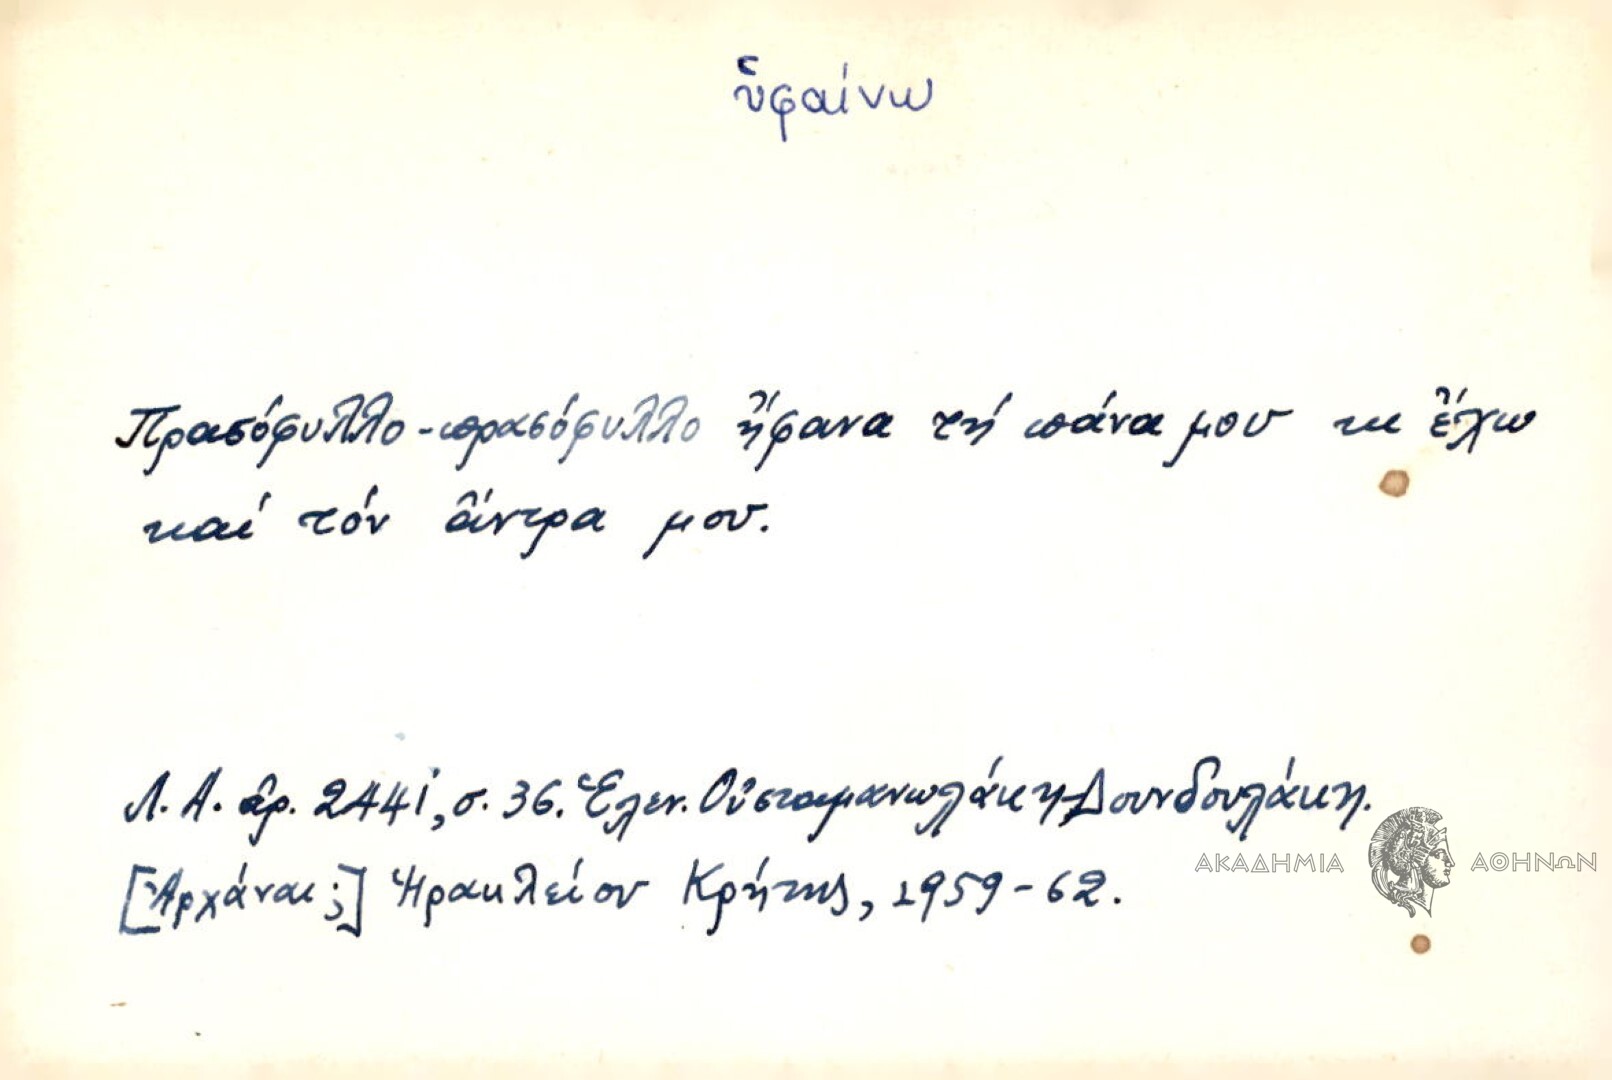 ὑφαίνω
Πρασόφυλλο-πρασόφυλλο ἤφανα τή πάνα μου κι ἔχω
καί τόν ἄντρα μου.
Λ. Α. ἀρ. 2441, σ. 36. Ἑλεν. Οὐσταμανωλάκη-Δουνδουλάκη.
[Ἀρχάναι;] Ἡρακλείου Κρήτης, 1959-62.
ΑΚΑΔΗΜΙΑ ΑΘΗΝΩΝ